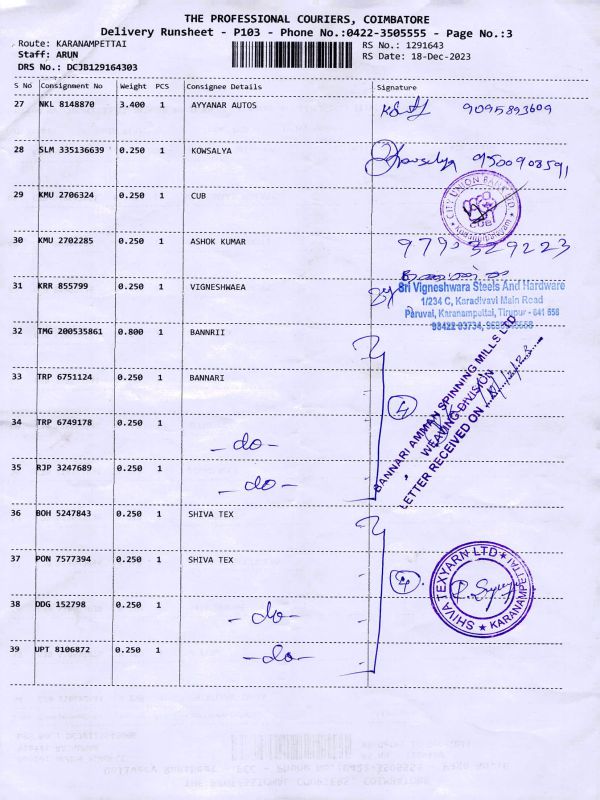 THE PROFESSIONAL COURIERS, COIMBATORE
Delivery Runsheet - P103 - Phone No.:0422-3505555 - Page No.:3
Route: KARANAMPETTAI
Staff: ARUN
DRS No.: DCJB129164303
RS No.: 1291643
RS Date: 18-Dec-2023
S No Consignment No Weight PCS Consignee Details Signature
27 NKL 8148870 3.400 1 AYYANAR AUTOS 9095893609
28 SLM 335136639 0.250 1 KOWSALYA Kowsalya 9500908591
29 KMU 2706324 0.250 1 CUB
CITY UNION BANK LTD
CUB
30 KMU 2702285 0.250 1 ASHOK KUMAR
31 KRR 855799 0.250 1 VIGNESHWAEA
Sri Vigneshwara Steels And Hardware
1/234 C, Karadivavi Main Road
Paruval, Karanampettai, Tirupur - 641 658
32 TMG 200535861 0.800 1 BANNRII
33 TRP 6751124 0.250 1 BANNARI
34 TRP 6749178 0.250 1 - do -
35 RJP 3247689 0.250 1 - do -
4
BANNARI AMMAN SPINNING MILLS LTD
WEAVING DIVISION
LETTER RECEIVED ON
36 BOH 5247843 0.250 1 SHIVA TEX
37 PON 7577394 0.250 1 SHIVA TEX
38 DDG 152798 0.250 1 - do -
39 UPT 8106872 0.250 1 - do -
4
SHIVA TEXYARN LTD ★ KARANAMPETTAI ★